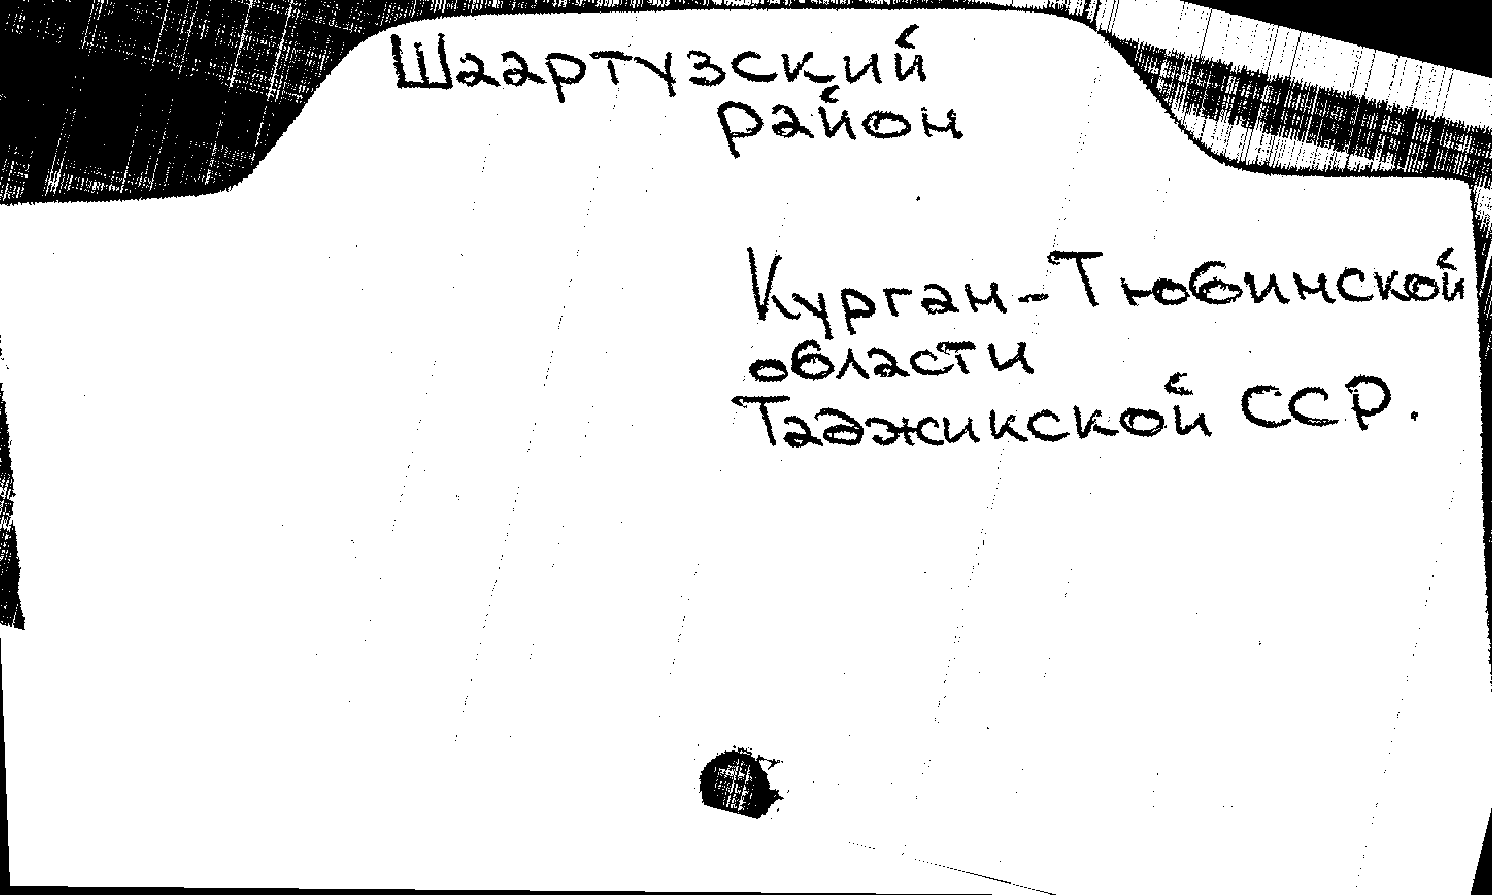 Шаартузский
район
Курган-Тюбинской
области
Таджикской ССР.